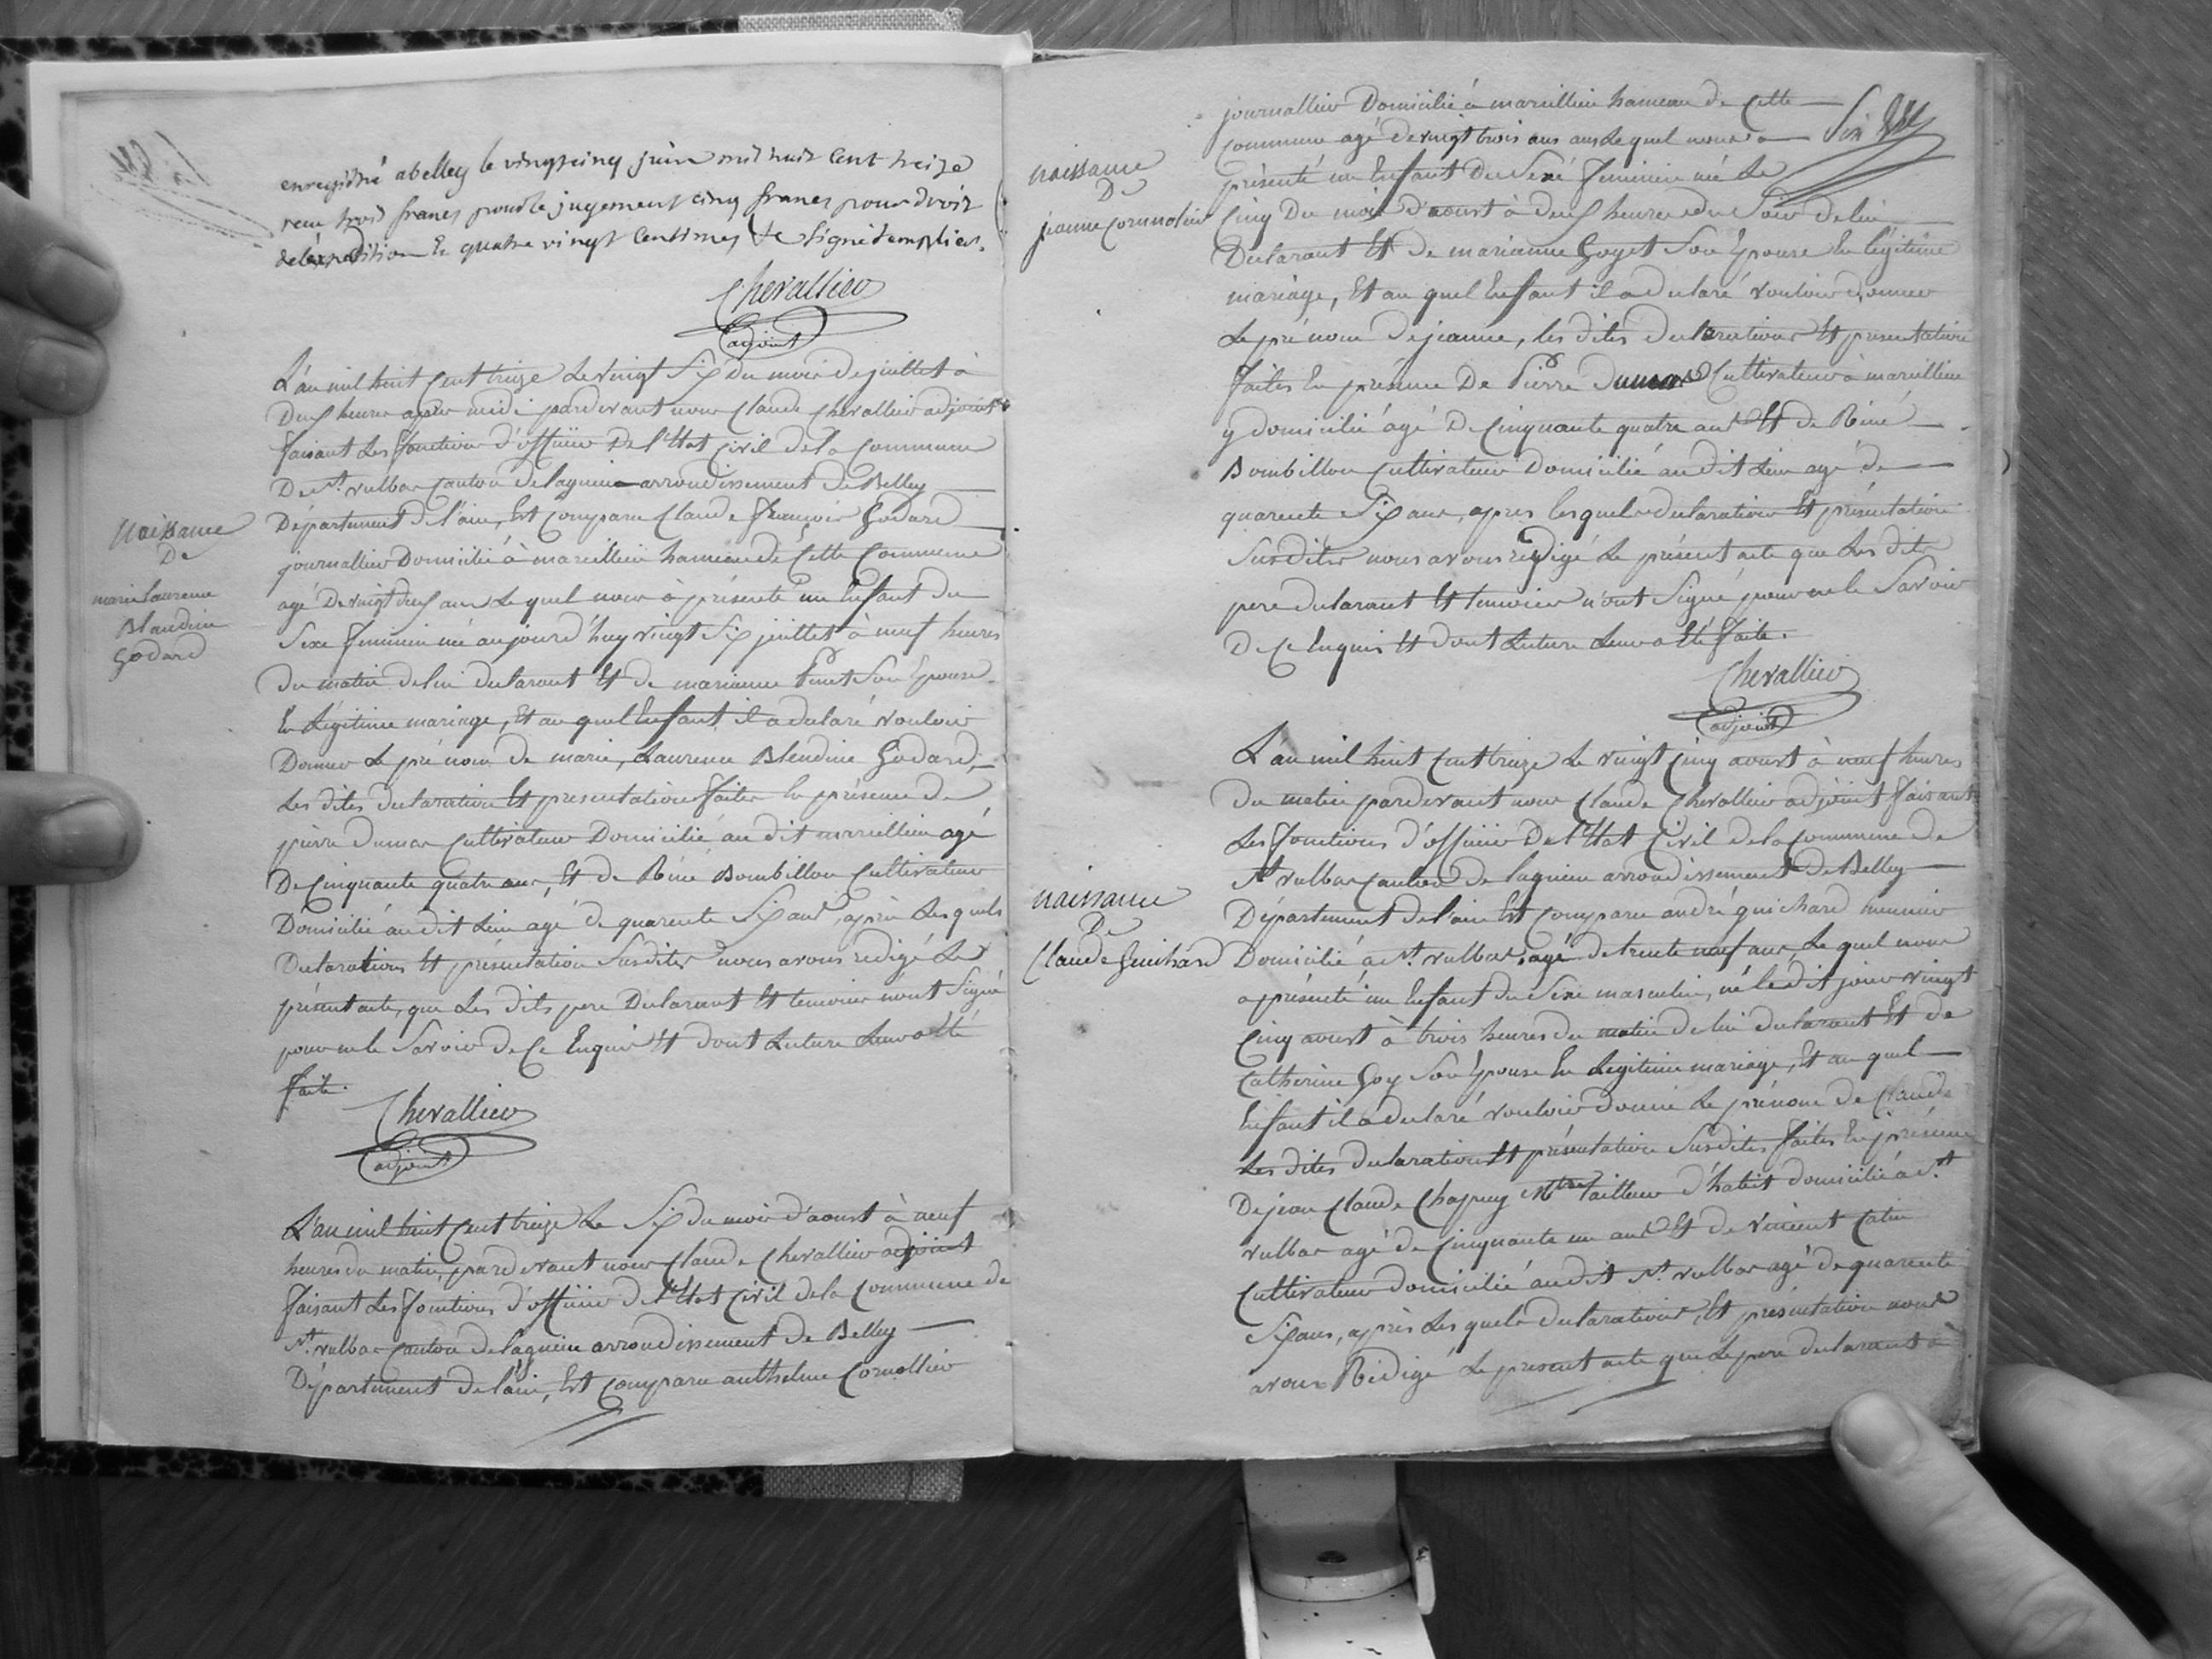 enregistré a belley le vingt cinq juin mil huit cent treize
recu trois francs pour le jugement cinq francs pour droit
de l'expedition et quatre vingt centimes
Chevallier
adjoint
L'an mil huit cent treize Le vingt Six Du mois de juillet à
Deux heures après midi pardevant nous Claude Chevallier adjoint
faisant Les fonctions d'officier De l'Etat Civil de la Commune
De St. vulbas Canton de lagnieu arrondissement de Belley
Département de l'ain, Est comparu Claude françois Godard
journallier Domicilié à marcillieu hameau de Cette Commune
agé De vingt deux ans Le quel nous à présenté un Enfant du
Sexe feminin né aujourd'huy vingt Six juillet à neuf heures
Du matin de lui declarant Et de marianne Son Epouse
En Légitime mariage, Et au quel Enfant il a declaré vouloir
Donner Le prénom de marie, Laurence Blendine Godard,
Les dites declaration Et presentation faites En présence de
pierre dumas Cultivateur Domicilié au dit marcillieu agé
De Cinquante quatre ans, Et de Réné Bombillon Cultivateur
Domicilié au dit Lieu agé de quarente Six ans, après Lesquels
Declarations Et présentation Susdites nous avons redigé Le
présent acte, que Les dits pere Declarant Et temoins n'ont Signé
pour ne le Savoir De Ce Enquis Et dont Lecture Leur a Eté
faite.
Chevallier
adjoint
naissance
De
marie laurence
Blandine
Godard
L'an mil huit Cent treize Le Six du mois d'aoust à neuf
heures du matin, pardevant nous Claude Chevallier adjoint
faisant Les fonctions d'officier de l'Etat Civil de la Commune de
St. vulbas Canton de lagnieu arrondissement de Belley
Département de l'ain, Est comparu anthelme Cornollier
journallier Domicilié à marcillieu hameau de Cette
Commune agé de vingt trois ans Le quel nous a
présenté un Enfant Du Sexe feminin né Le
Cinq Du mois d'aoust à deux heures du Soir de lui
Declarant Et de marianne Goyet Son Epouse En légitime
mariage, Et au quel Enfant il a declaré vouloir donner
Le prénom De jeanne, les dites declarations Et presentation
faites En présence De Pierre Dumas Cultivateur à marcillieu
y domicilié agé De Cinquante quatre ans Et de Réné
Bombillon Cultivateur Domicilié au dit Lieu agé de
quarente Six ans, apres lesquels declaration Et présentation
Susdites nous avons redigé Le présent acte que Les dits
pere declarant Et temoins n'ont Signé pour ne le Savoir
De Ce Enquis Et dont Lecture Leur a Eté faite.
Chevallier
adjoint
naissance
De
jeanne
L'an mil huit Cent treize Le vingt Cinq aoust à neuf heures
du matin pardevant nous Claude Chevallier adjoint faisant
Les fonctions d'officier De l'Etat Civil de la Commune de
St vulbas Canton de lagnieu arrondissement De Belley
Département de l'ain Est comparu andré guichard meunier
Domicilié à St. vulbas, agé de trente neuf ans, Le quel nous
a présenté un Enfant du Sexe masculin, né le dit jour vingt
Cinq aoust à trois heures du matin de lui declarant Et de
Catherine Goy Son Epouse En Légitime mariage, Et au quel
Enfant il a declaré vouloir donné Le prénom de Claude
Les dites declaration Et présentation Susdites faites En présence
De jean Claude Chapuy Mtre tailleur d'habit domicilié à St.
vulbas agé de Cinquante un ans Et de vincent
Cultivateur domicilié au dit St. vulbas agé de quarente
Six ans, après Les quels declarations, Et présentation nous
avons Rédigé Le present acte que Le pere declarant à
naissance
De
Claude Guichard